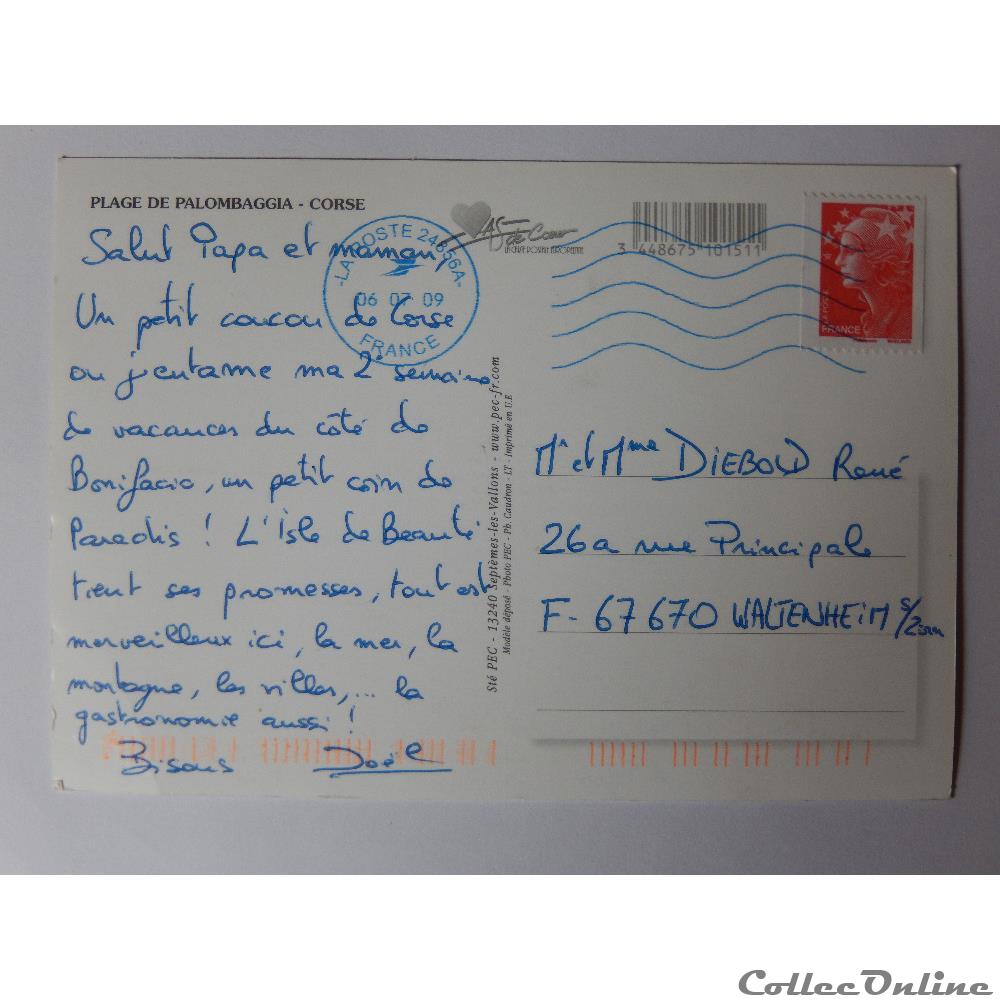 PLAGE DE PALOMBAGGIA - CORSE
Salut Papa et maman,
Un petit coucou de Corse
ou j'entame ma 2e semaine
de vacances du côté de
Bonifacio, un petit coin de
Paradis ! L'Isle de Beauté
tient ses promesses, tout est
merveilleux ici, la mer, la
montagne, les villes,... la
gastronomie aussi !
Bisous Joël
LA POSTE 24856A
06 07 09
FRANCE
As de Cœur
LA CARTE POSTALE EUROPEENNE
3 448675 101511
LA POSTE
FRANCE
Sté PEC - 13240 Septèmes-les-Vallons - www.pec-fr.com
Modèle déposé - Photo PEC - Ph. Caudron - LT - Imprimé en U.E
Mr et Mme DIEBOLD René
26a rue Principale
F-67670 WALTENHEIM s/Zorn
CollecOnline